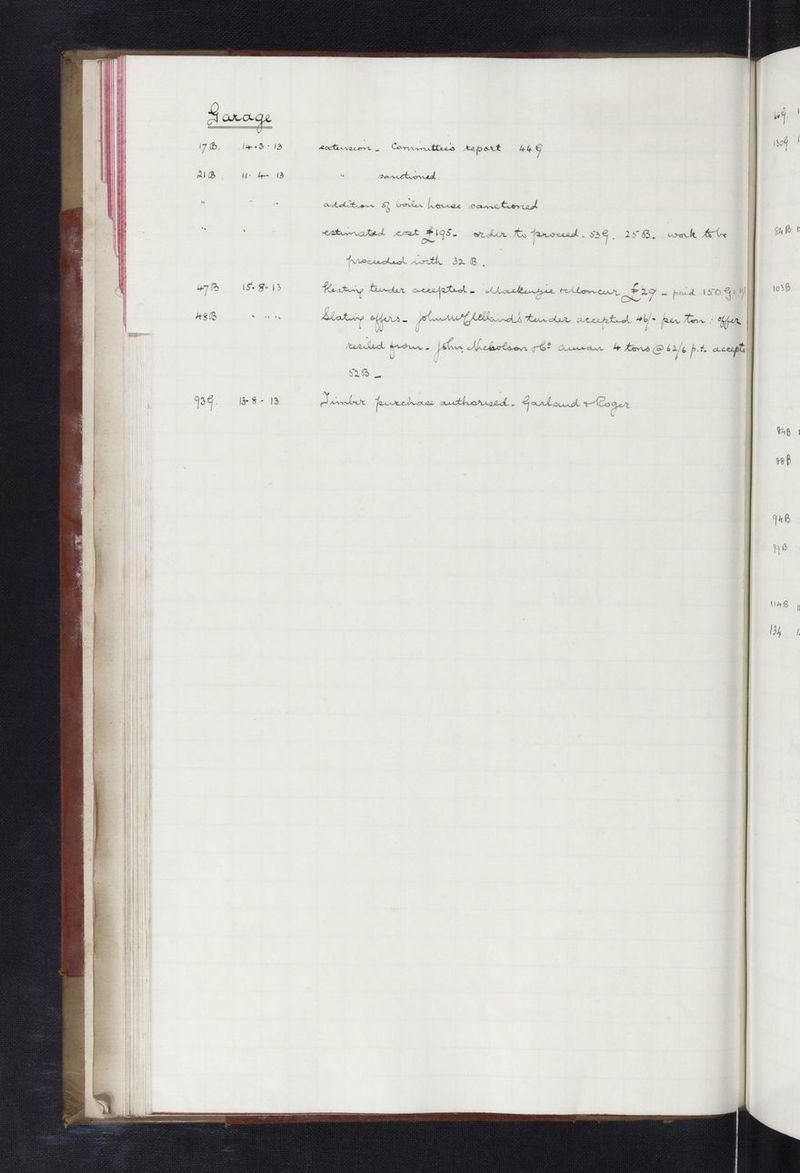 Garage
17 B. 14-3-13 extension - Committee's report 44 G
21 B. 11-4-13 " sanctioned
" " addition of boiler house sanctioned
" " estimated cost £195 - order to proceed. 53 G. 25 B. work to be
proceeded with 32 B.
47 B 15-8-13 Heating tender accepted - Mackenzie & Moncur £29 - paid 150 G.
48 B. " " " Slating offers - tender accepted 46/- per ton : offer
from - John Nicholson & Co 4 tons @ 62/6 p.t.
52 B -
93 G. 13-8-13 Timber purchase authorised - Garland & Roger
49.
150 G
84 B
103 B
84 B
88 B
94 B
99 B
114 B
134